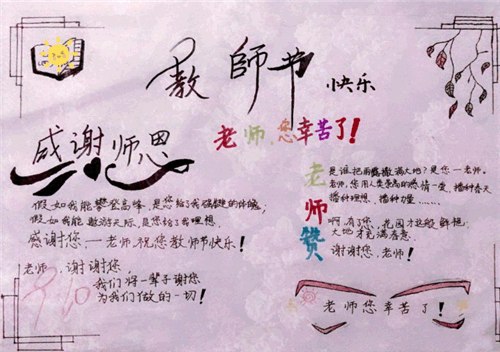 教師节 快乐
感谢师恩
老师,您辛苦了!
假如我能攀登高峰,是您给了我强健的体魄,
假如我能遨游天际,是您给了我理想.
感谢您一老师,祝您教师节快乐!
老师,谢谢您,
我们将一辈子谢您
为我们做的一切!
9.10
老师赞
是谁把雨露撒满大地?是您一老师.
老师,您用人类崇高的热情一爱,播种春天
播种理想、播种力量......
啊,有了您,花园才这般鲜艳
大地才充满春意
谢谢您,老师!
老师您辛苦了!